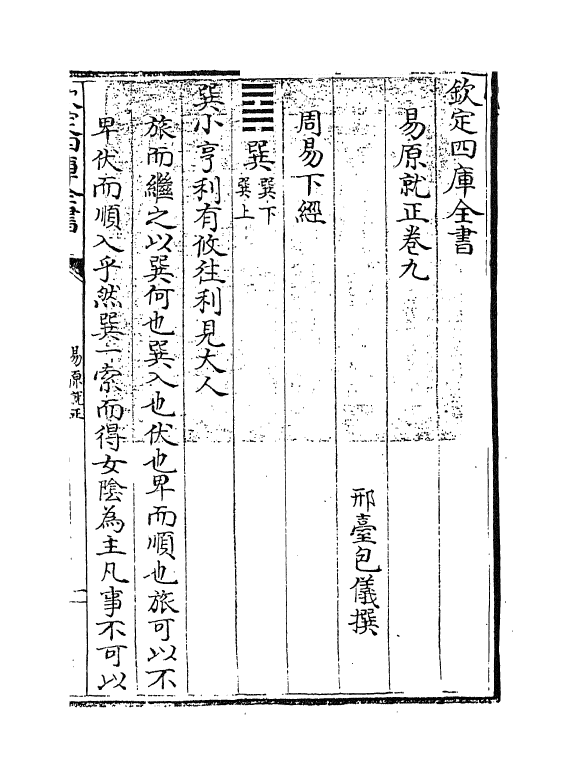 欽定四庫全書
易原就正卷九
邢臺包儀撰
周易下經
䷸巽巽下巽上
巽小亨利有攸往利見大人
旅而繼之以巽何也巽入也伏也卑而順也旅可以不
卑伏而順入乎然巽一索而得女陰為主凡事不可以
欽定四庫全書
易原就正